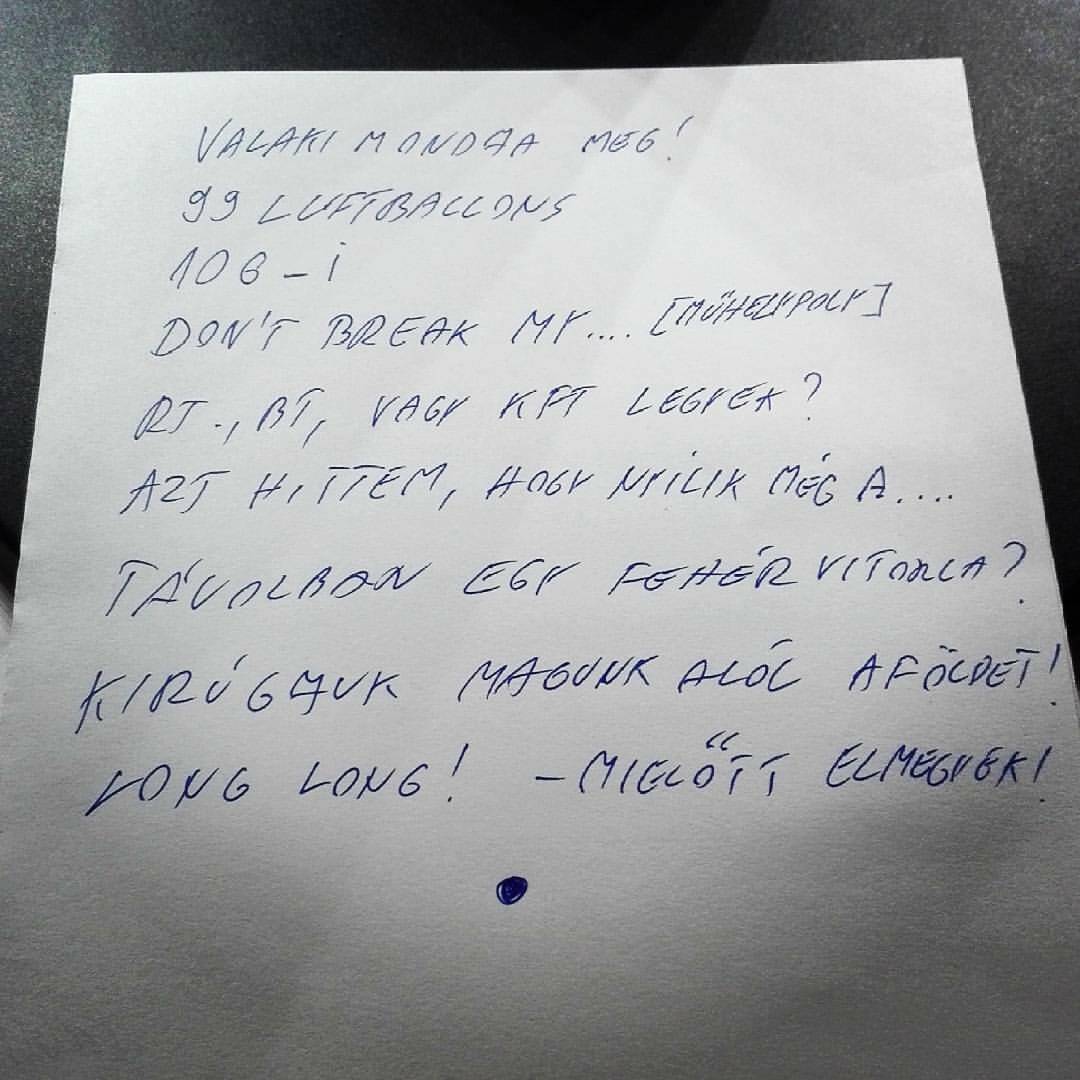 VALAKI MONDJA MEG!
99 LUFTBALLONS
106-I
DON'T BREAK MY.... [MŰHELYPOLY]
RT., BT, VAGY KFT LEGYEK?
AZT HITTEM, HOGY NYÍLIK MÉG A....
TÁVOLBAN EGY FEHÉR VITORLA?
KIRÚGJUK MAGUNK ALÓL A FÖLDET!
LONG LONG! - MIELŐTT ELMEGYEK!